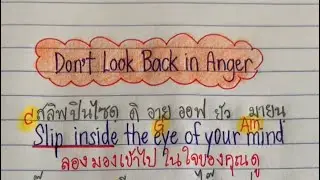 Don't Look Back in Anger
C G Am
สลิพ อินไซด์ ดิ อาย ออฟ ยัว มายน
Slip inside the eye of your mind
ลองมองเข้าไป ในใจของคุณดู